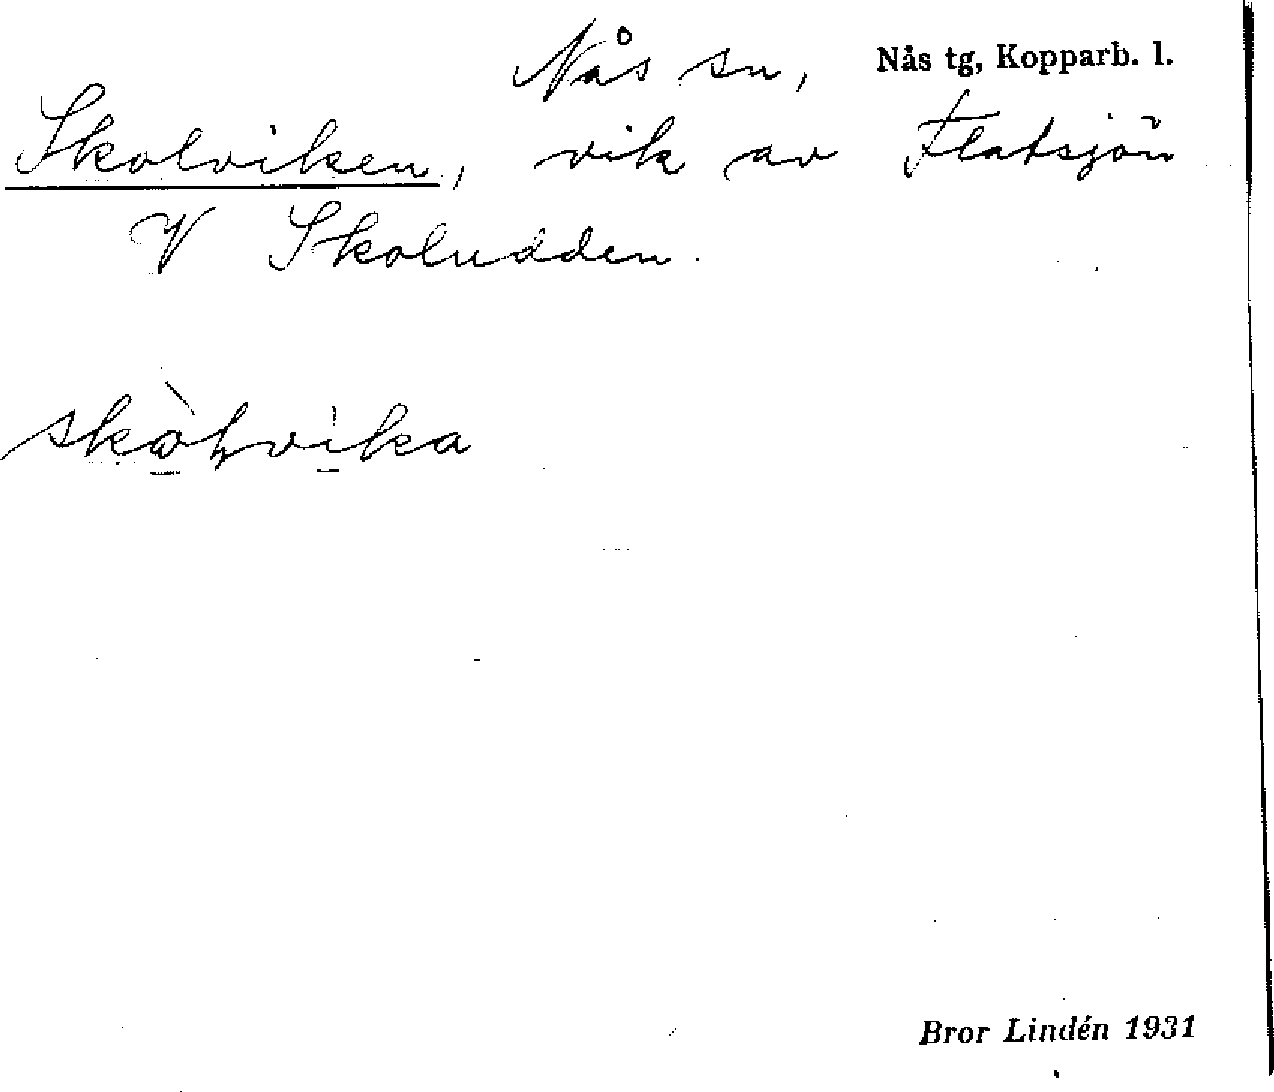 Nås sn, Nås tg, Kopparb. l.
Skolviken, vik av Flatsjön
V Skoludden.
skòļvika
Bror Lindén 1931